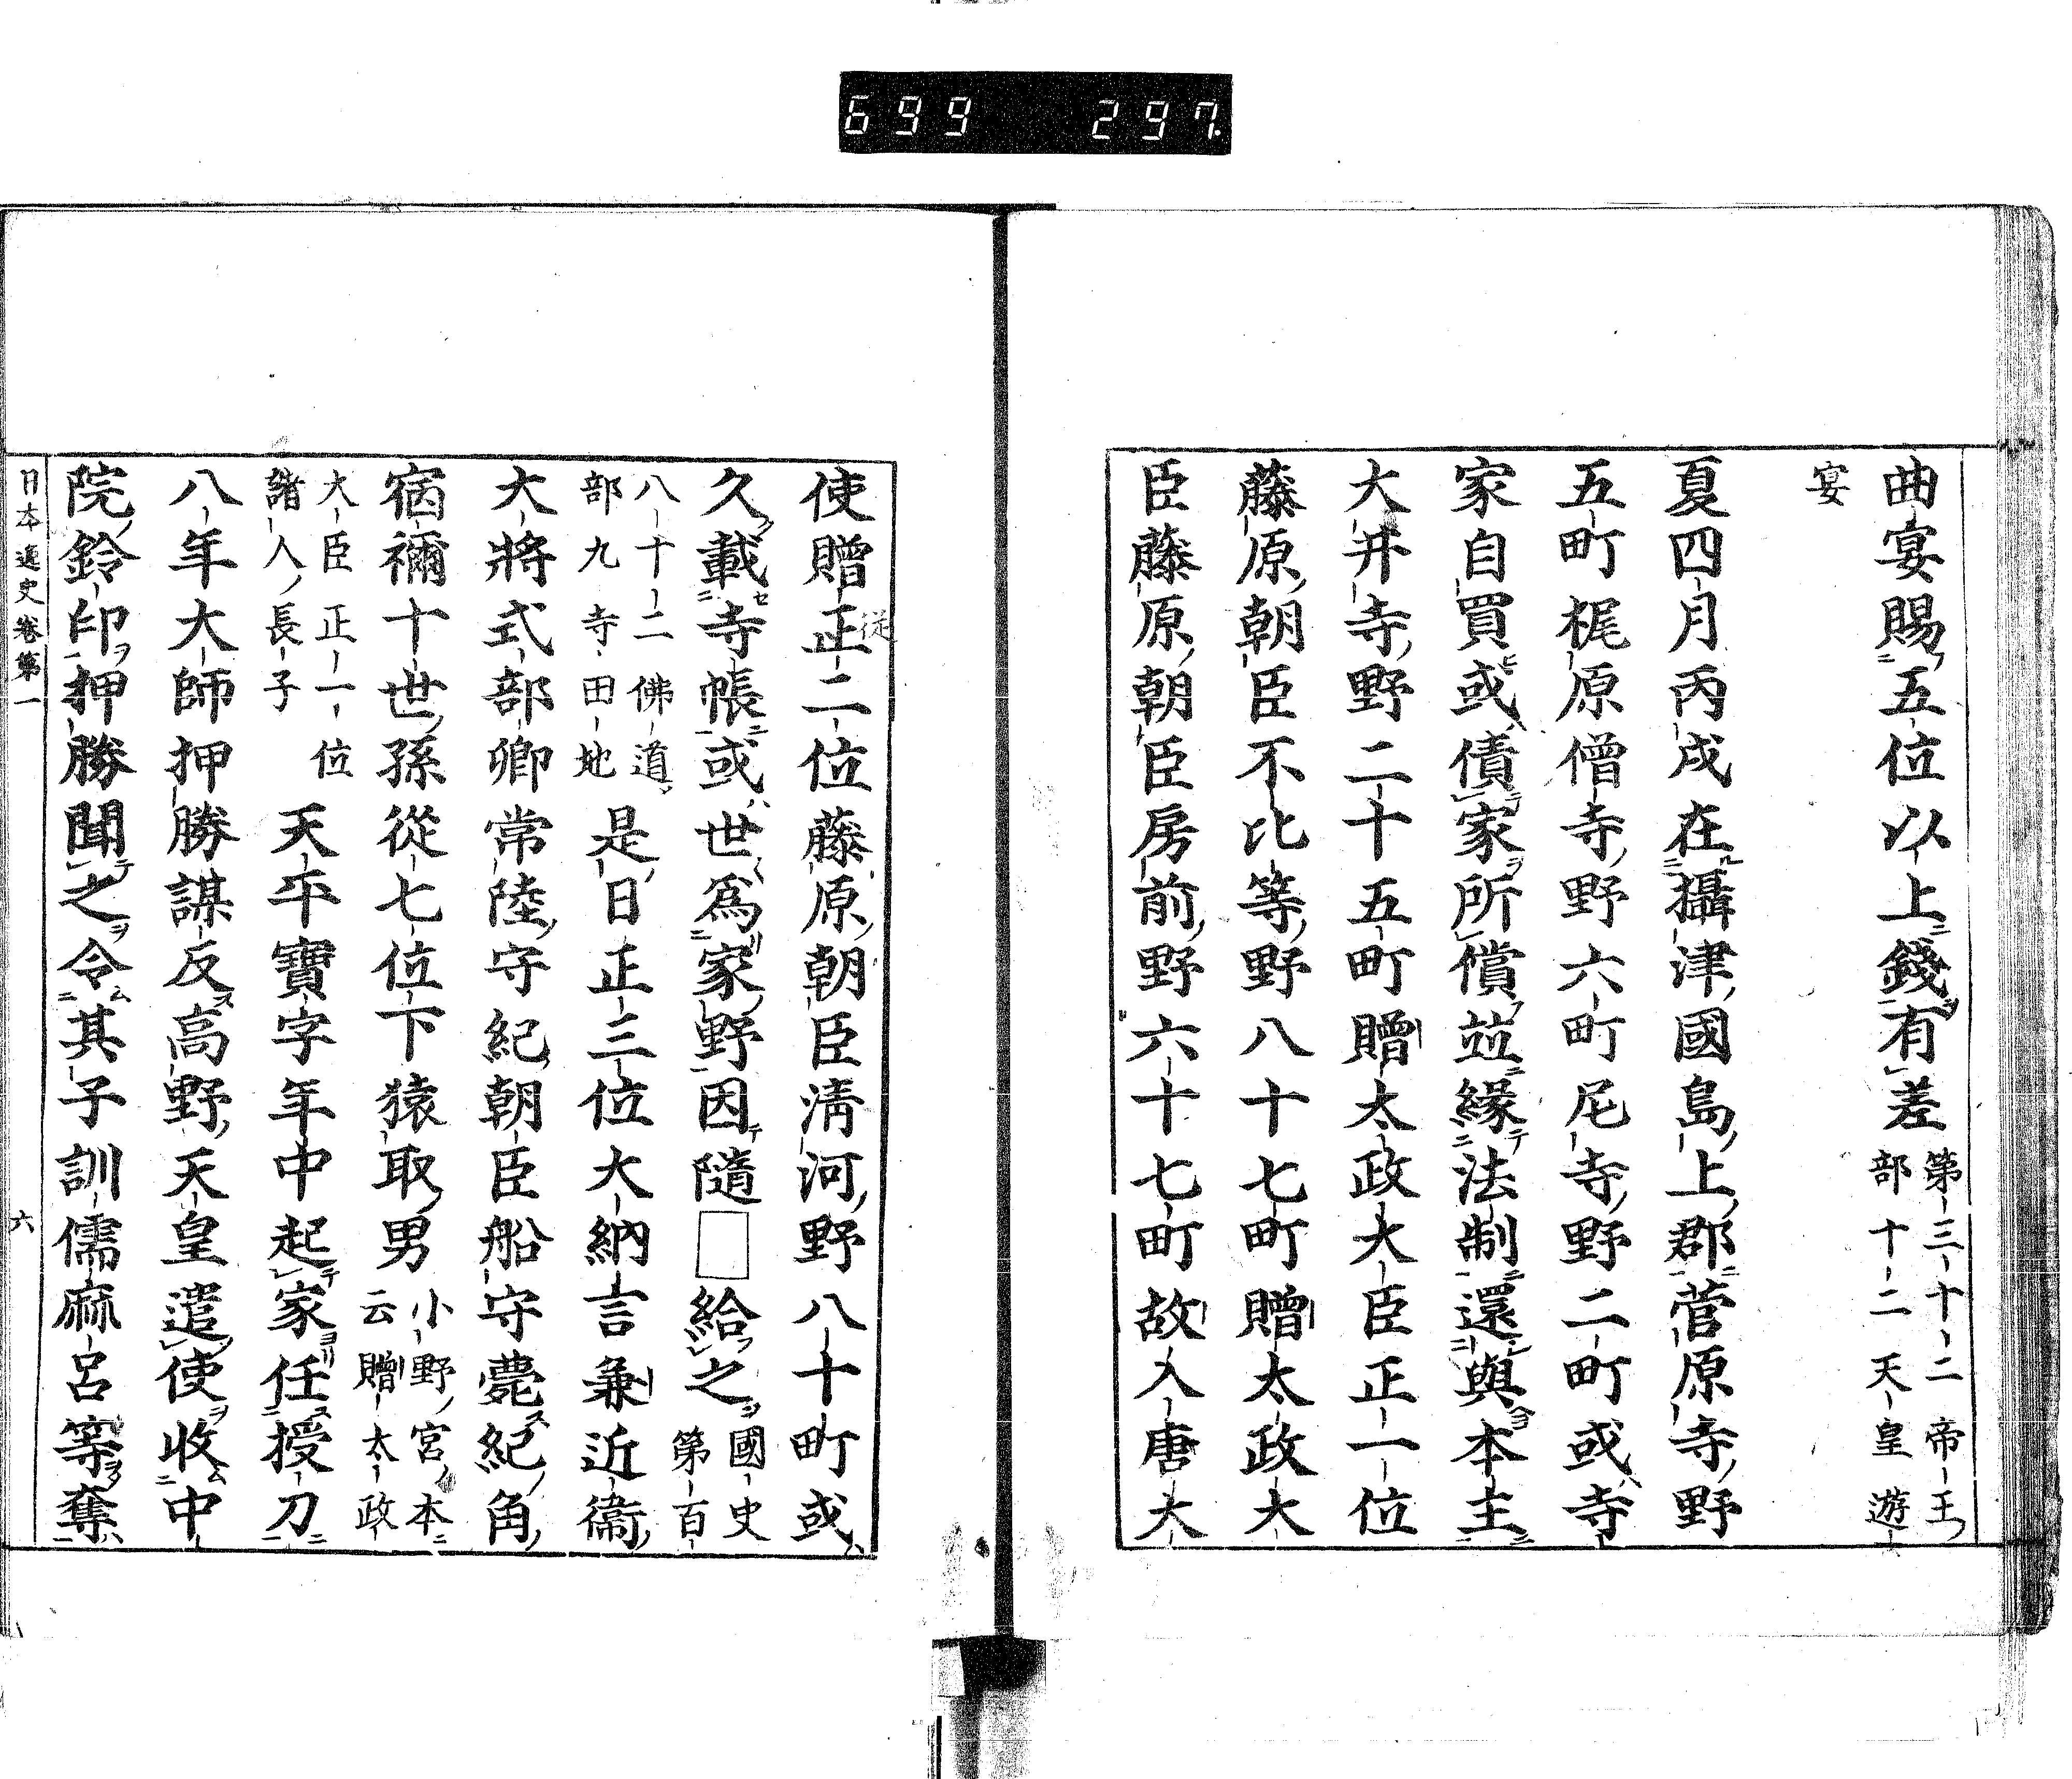 699 297.
曲宴賜五位以上錢有差第三十二帝王
部十二天皇遊
宴
夏四月丙戌在攝津國島上郡菅原寺野
五町梶原僧寺野六町尼寺野二町或寺
家自買或債家所償竝緣法制還與本主
大井寺野二十五町贈太政大臣正一位
藤原朝臣不比等野八十七町贈太政大
臣藤原朝臣房前野六十七町故入唐大
使贈正二位藤原朝臣淸河野八十町或
從
久載寺帳或世爲家野因隨□給之國史
第百
八十二佛道
部九寺田地是日正三位大納言兼近衞
大將式部卿常陸守紀朝臣船守薨紀角
宿禰十世孫從七位下猿取男小野宮本
云贈太政
大臣正一位
諸人長子天平寶字年中起家任授刀
八年大師押勝謀反高野天皇遣使收中
院鈴印押勝聞之令其子訓儒麻呂等奪
日本逸史卷第一 六